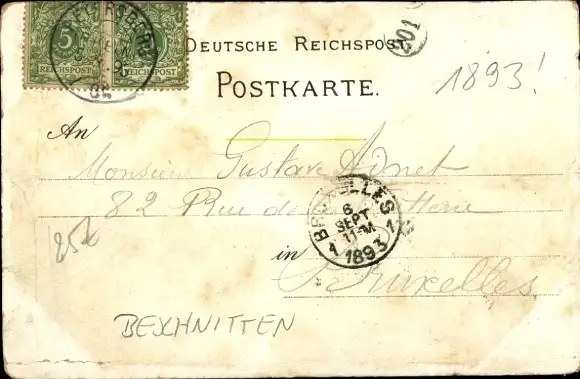 5
REICHSPOST REICHSPOST
DEUTSCHE REICHSPOST.
POSTKARTE.
1893!
An
Monsieur Gustave
82 Rue de
BRUXELLES
6
SEPT
11-M
1893
in
Bruxelles
BESCHNITTEN